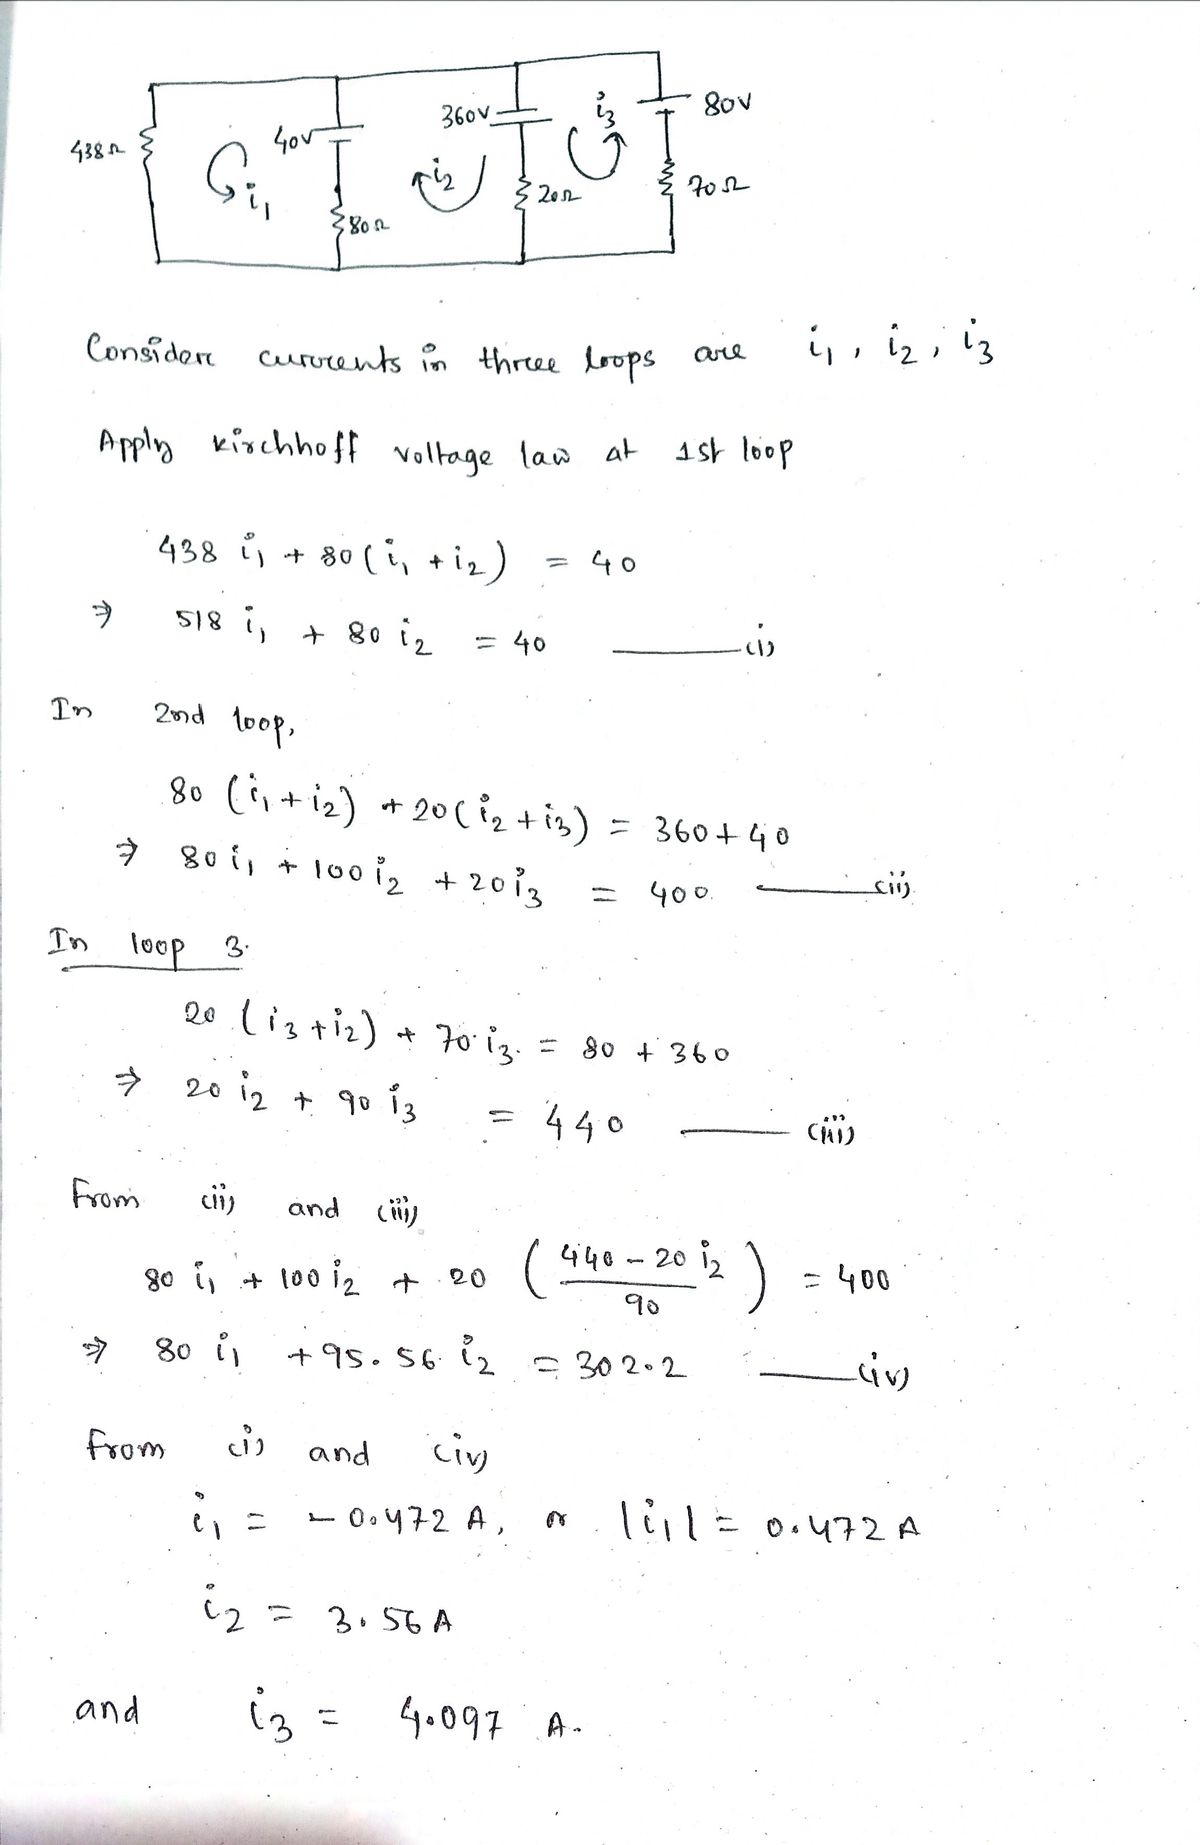 438Ω
40V
80Ω
i₁
360V
i₂
20Ω
i₃
80V
70Ω
Consider currents in three loops are i₁, i₂, i₃
Apply kirchhoff voltage law at 1st loop
438 i₁ + 80(i₁ + i₂) = 40
⇒ 518 i₁ + 80 i₂ = 40 ——— (i)
In 2nd loop,
80 (i₁ + i₂) + 20(i₂ + i₃) = 360 + 40
⇒ 80 i₁ + 100 i₂ + 20 i₃ = 400 ——— (ii)
In loop 3.
20 (i₃ + i₂) + 70 i₃. = 80 + 360
⇒ 20 i₂ + 90 i₃ = 440 ——— (iii)
From (ii) and (iii)
80 i₁ + 100 i₂ + 20 ( (440 - 20 i₂) / 90 ) = 400
⇒ 80 i₁ + 95.56 i₂ = 302.2 ——— (iv)
From (i) and (iv)
i₁ = - 0.472 A, or |i₁| = 0.472 A
i₂ = 3.56 A
and i₃ = 4.097 A.